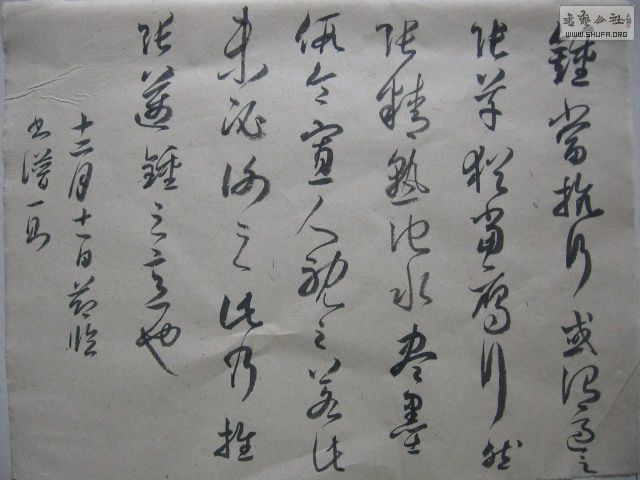 鍾當抗行或謂過之
張草猶當雁行然
張精熟池水盡墨
假令寡人耽之若此
未必謝之此乃推
張邁鍾之意也
十二月十一日節臨
书譜一段
書藝公社
WWW.SHUFA.ORG